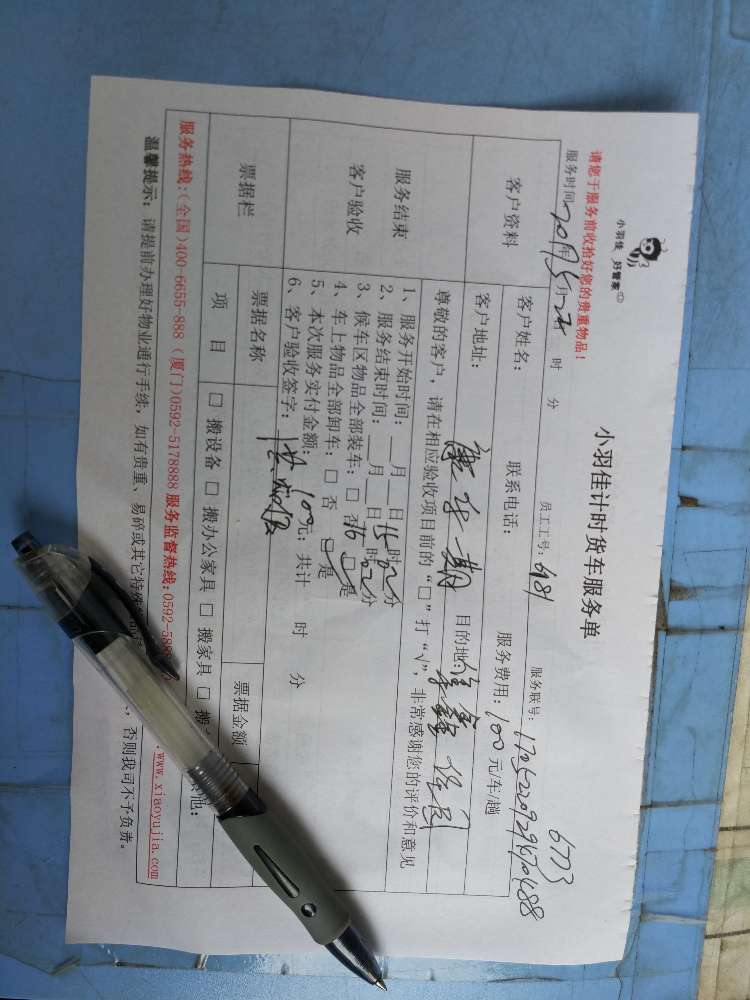 小羽佳 好管家
小羽佳计时货车服务单
请您于服务前收拾好您的贵重物品！
6773
服务时间: 2019年5月22日 时 分 员工工号: 981 服务联号:
客户资料
客户姓名: 联系电话: 服务费用: 100元/车/趟
客户地址: 一期 目的地:
尊敬的客户，请在相应验收项目前的“□”打“√”，非常感谢您的评价和意见
服务结束
客户验收
1、服务开始时间: 月 日15时02分
2、服务结束时间: 月 日16时02分
3、候车区物品全部装车: □ 否 □ 是
4、车上物品全部卸车: □ 否 □ 是
5、本次服务实付金额: 100元; 共计 时 分
6、客户验收签字:
票据栏
票据名称 票据金额
项 目 □ 搬设备 □ 搬办公家具 □ 搬家具 □ 搬 其他:
服务热线:(全国)400-6655-888 (厦门)0592-5178888 服务监督热线:0592-588 www.xiaoyujia.com
温馨提示: 请提前办理好物业通行手续, 如有贵重、易碎或其它特殊 , 否则我司不予负责。